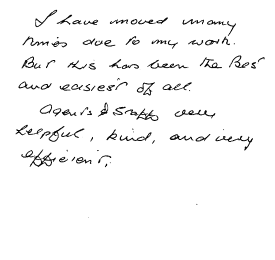 I have moved many
times due to my work.
But this has been the Best
and easiest of all.
Agents & staff very
helpful, kind, and very
efficient.